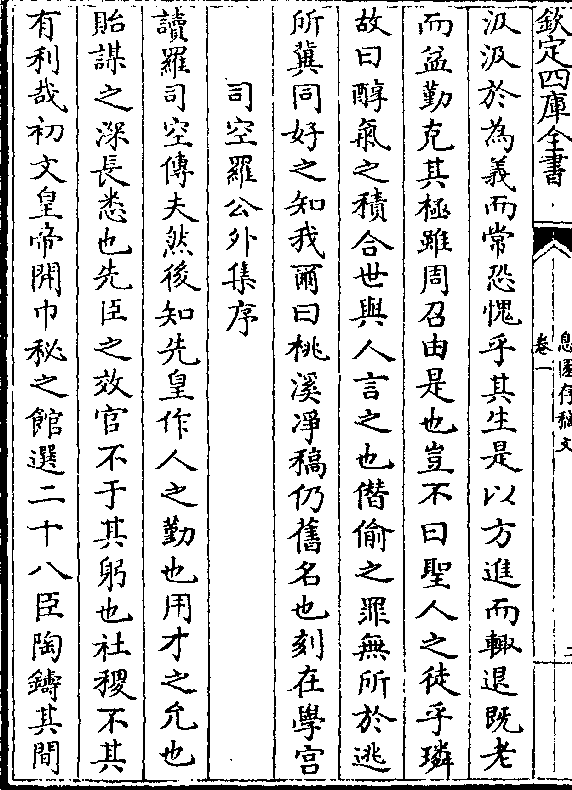 欽定四庫全書
息園存稿文
卷一
二
汲汲於為義而常恐愧乎其生是以方進而輙退既老
而益勤克其極雖周召由是也豈不曰聖人之徒乎璘
故曰醇氣之積合世與人言之也僭偷之罪無所於逃
所冀同好之知我爾曰桃溪凈稿仍舊名也刻在學宫
司空羅公外集序
讀羅司空傳夫然後知先皇作人之勤也用才之允也
貽謀之深長悉也先臣之效官不于其躬也社稷不其
有利哉初文皇帝開巾秘之館選二十八臣陶鑄其間